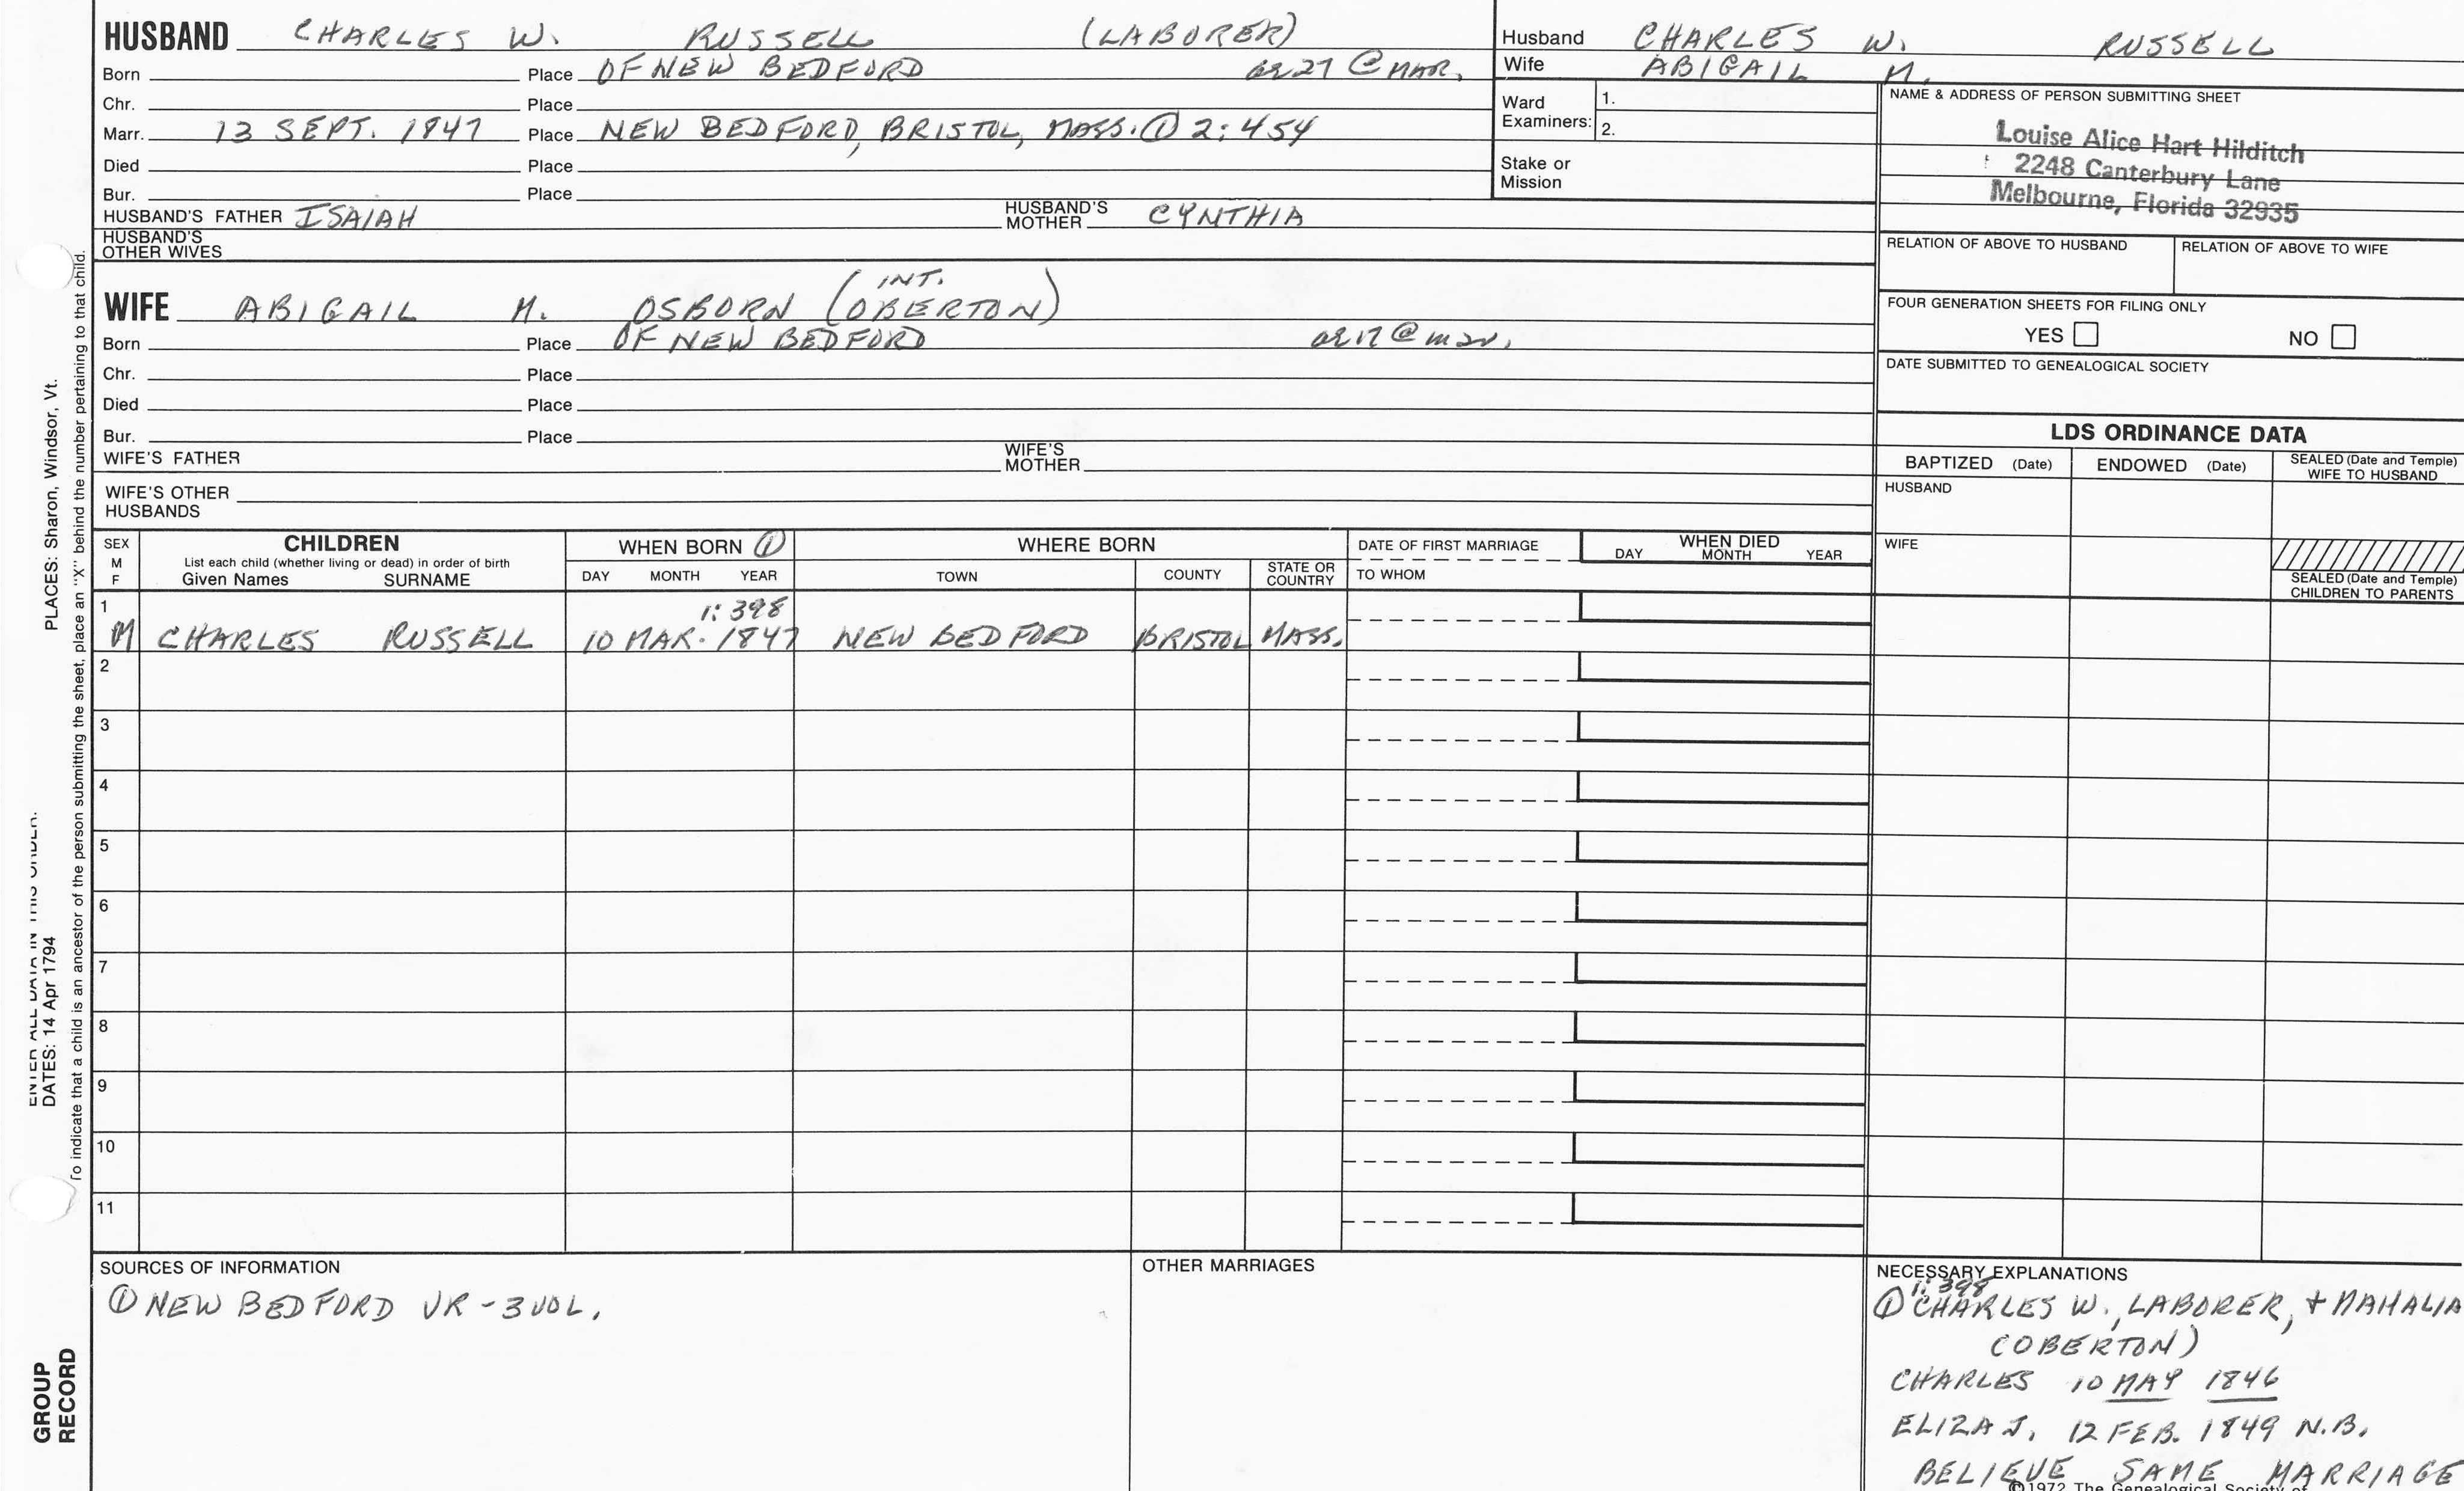 HUSBAND CHARLES W. RUSSELL (LABORER)
Born Place OF NEW BEDFORD ae 27 @ MAR.
Chr. Place
Marr. 13 SEPT. 1847 Place NEW BEDFORD, BRISTOL, MASS. ① 2:454
Died Place
Bur. Place
HUSBAND'S FATHER ISAIAH HUSBAND'S MOTHER CYNTHIA
HUSBAND'S OTHER WIVES
Husband CHARLES W. RUSSELL
Wife ABIGAIL M.
Ward Examiners: 1.
2.
Stake or Mission
NAME & ADDRESS OF PERSON SUBMITTING SHEET
Louise Alice Hart Hilditch
2248 Canterbury Lane
Melbourne, Florida 32935
RELATION OF ABOVE TO HUSBAND RELATION OF ABOVE TO WIFE
FOUR GENERATION SHEETS FOR FILING ONLY
YES NO
DATE SUBMITTED TO GENEALOGICAL SOCIETY
INT.
WIFE ABIGAIL M. OSBORN (OBERTON)
Born Place OF NEW BEDFORD ae 17 @ mar.
Chr. Place
Died Place
Bur. Place
WIFE'S FATHER WIFE'S MOTHER
WIFE'S OTHER HUSBANDS
LDS ORDINANCE DATA
BAPTIZED (Date) ENDOWED (Date) SEALED (Date and Temple) WIFE TO HUSBAND
HUSBAND
WIFE
SEALED (Date and Temple) CHILDREN TO PARENTS
SEX M F
CHILDREN
List each child (whether living or dead) in order of birth
Given Names SURNAME
WHEN BORN ①
DAY MONTH YEAR
WHERE BORN
TOWN COUNTY STATE OR COUNTRY
DATE OF FIRST MARRIAGE
TO WHOM
WHEN DIED
DAY MONTH YEAR
1 1:398
M CHARLES RUSSELL 10 MAR. 1847 NEW BEDFORD BRISTOL MASS.
2
3
4
5
6
7
8
9
10
11
SOURCES OF INFORMATION
① NEW BEDFORD VR - 3 VOL.
OTHER MARRIAGES
NECESSARY EXPLANATIONS
1:398
① CHARLES W., LABORER, + MAHALIA
(OBERTON)
CHARLES 10 MAY 1846
ELIZA J. 12 FEB. 1849 N.B.
BELIEVE SAME MARRIAGE
©1972 The Genealogical Society of
PLACES: Sharon, Windsor, Vt.
ENTER ALL DATA IN THIS ORDER:
DATES: 14 Apr 1794
To indicate that a child is an ancestor of the person submitting the sheet, place an "X" behind the number pertaining to that child.
GROUP
RECORD